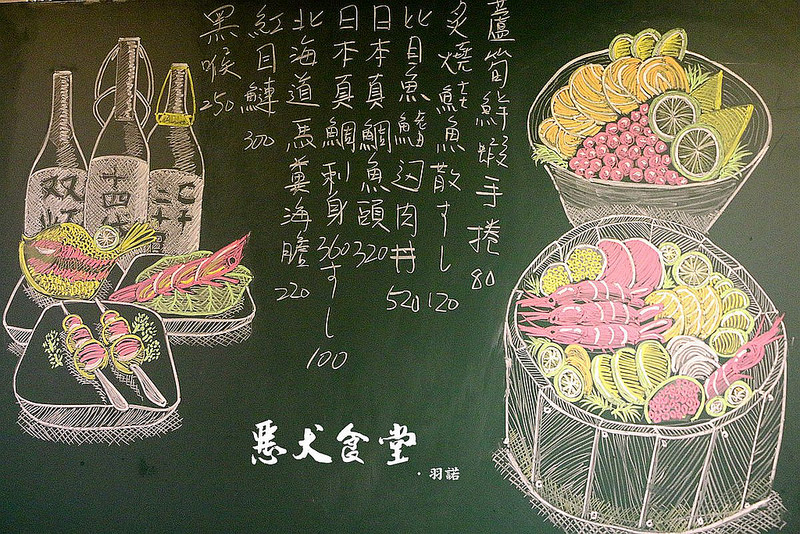 蘆筍鮮蝦手捲 80
炙燒鮭魚散すし 120
比目魚鰭边肉丼 520
日本真鯛魚頭 320
日本真鯛刺身 360 すし 100
北海道馬糞海膽 220
紅目鰱 300
黑喉 250
十四代
悪犬食堂
·羽諾